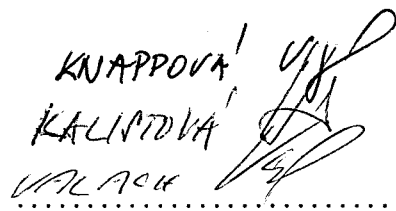 KNAPPOVÁ
KALISTOVÁ
VALACH